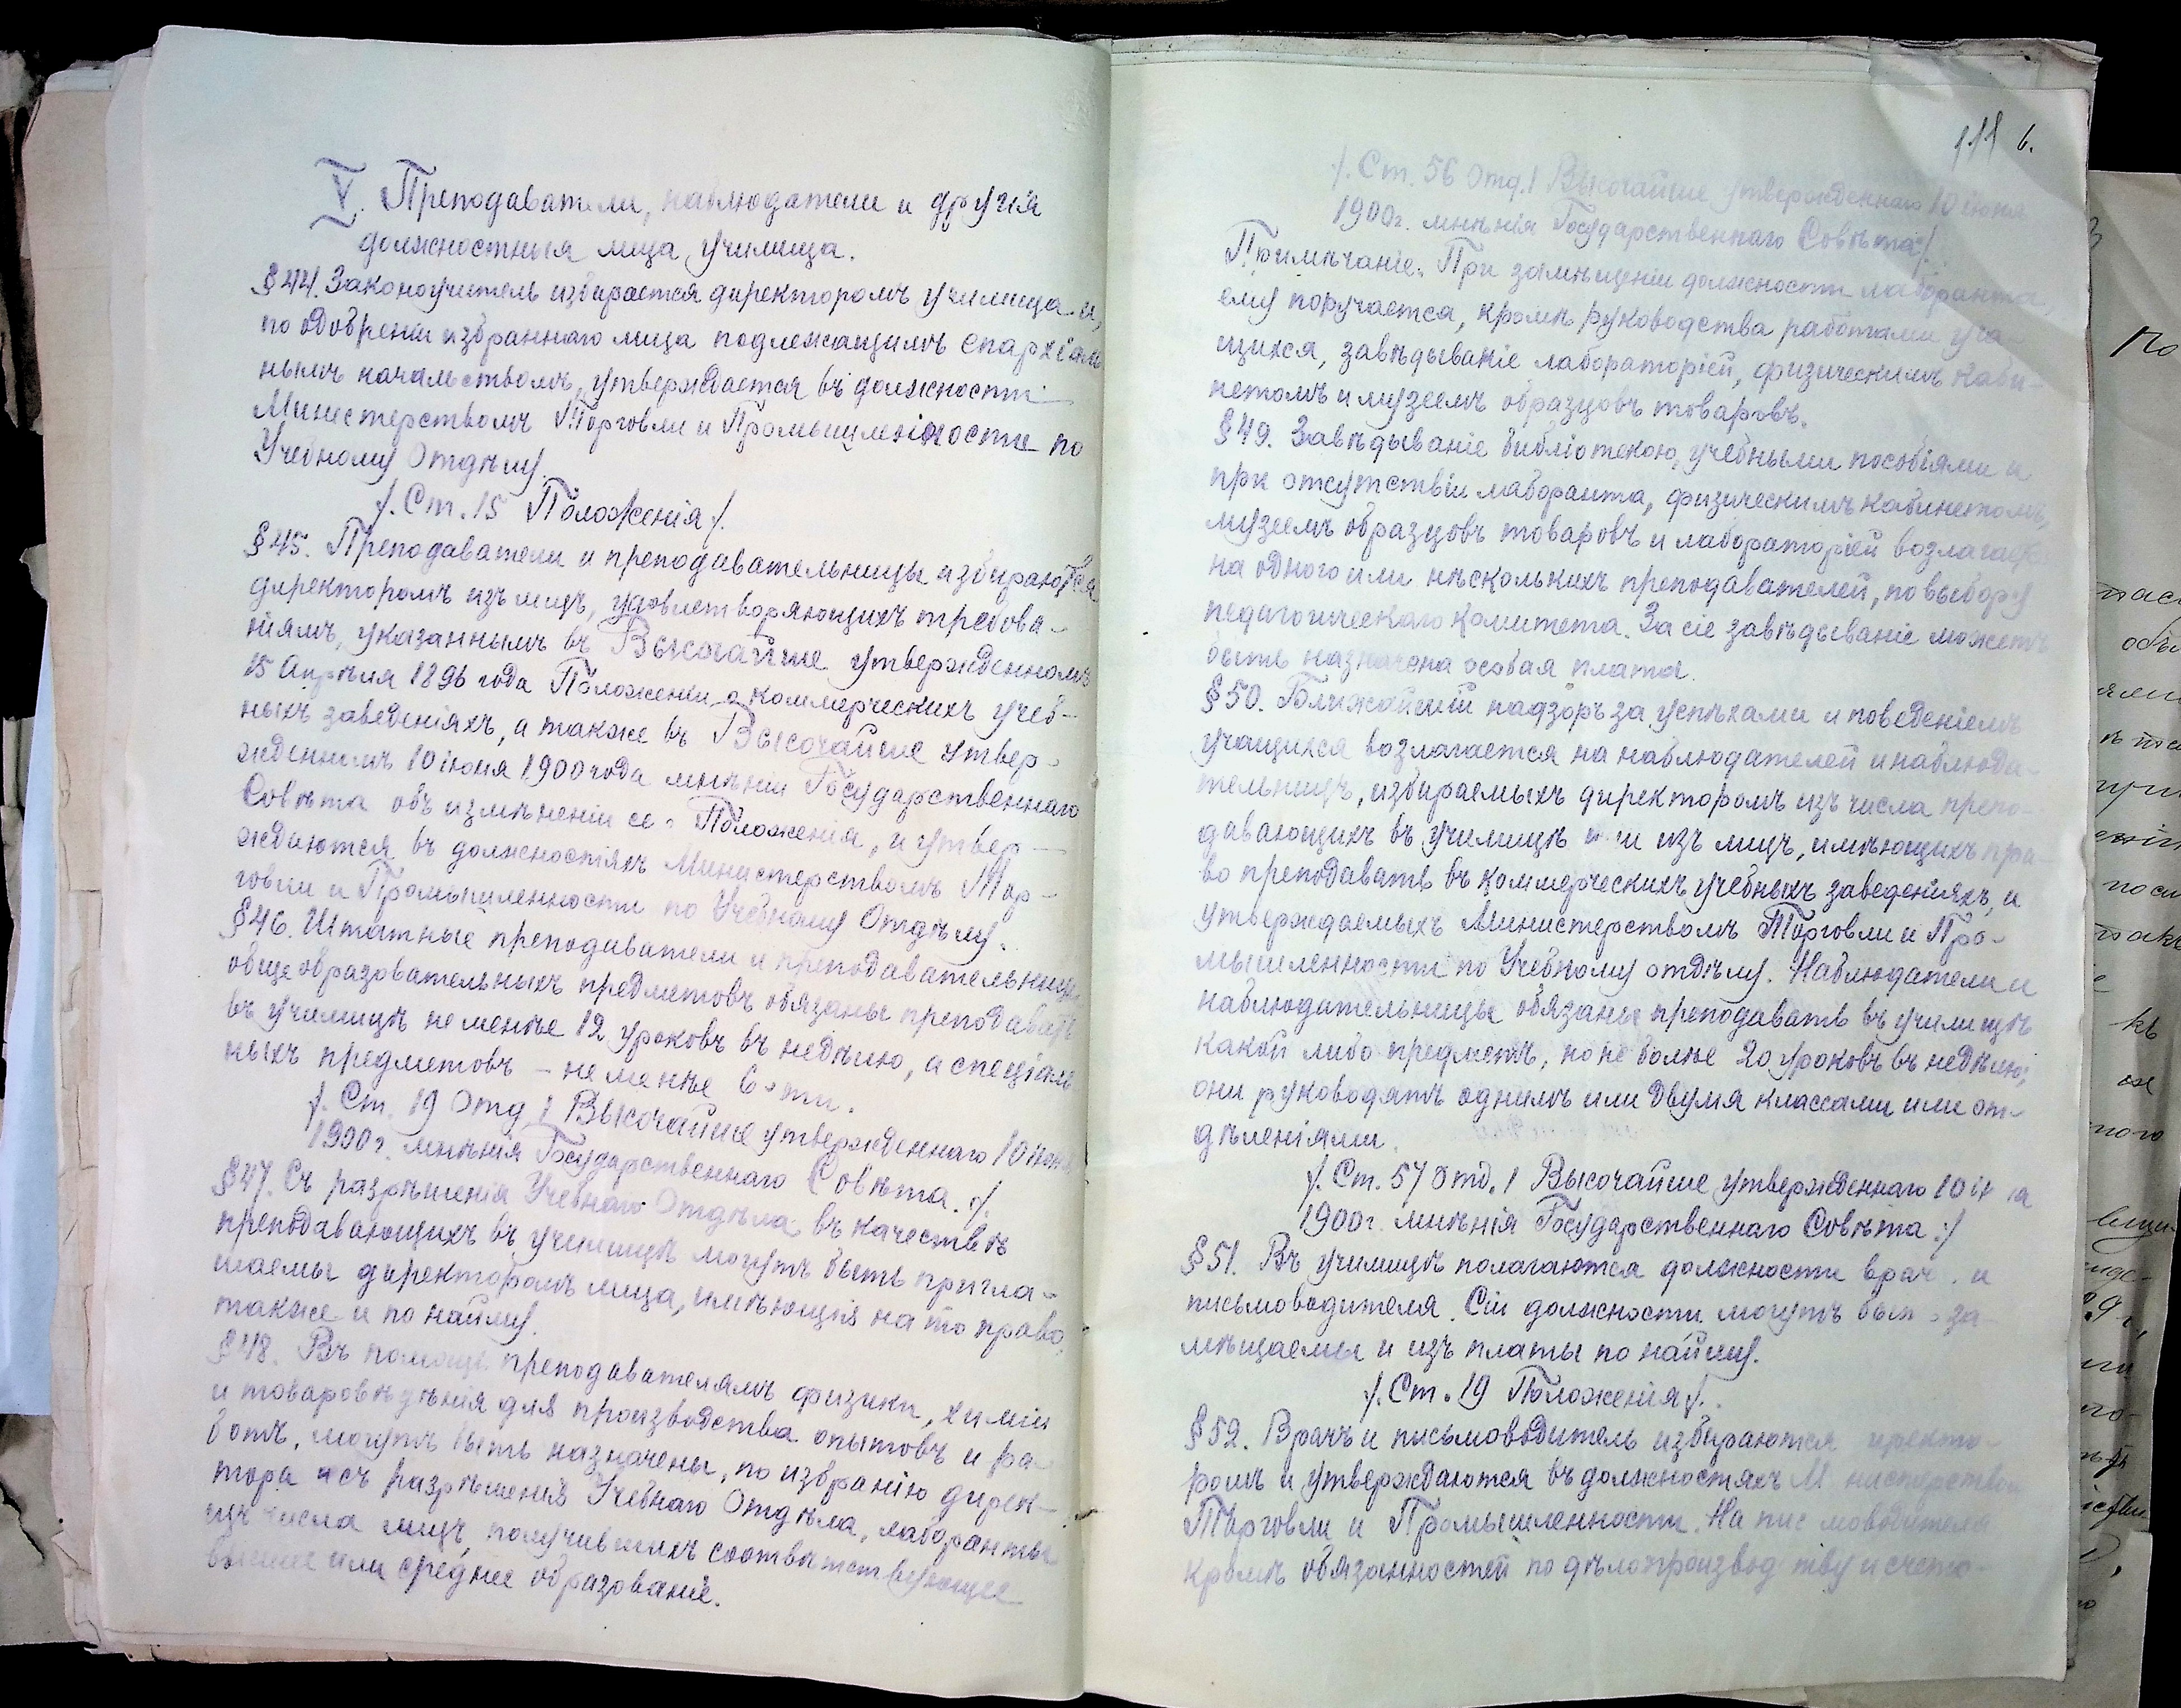 V. Преподаватели, наблюдатели и другія
должностныя лица училища.
§44. Законоучитель избирается директоромъ училища и,
по одобреніи избраннаго лица подлежащимъ епархіаль
нымъ начальствомъ, утверждается въ должности
Министерствомъ Торговли и Промышленности по
Учебному Отдѣлу.
/. Ст. 15 Положенія /.
§45. Преподаватели и преподавательницы избираются
директоромъ изъ лицъ, удовлетворяющихъ требова-
ніямъ, указаннымъ въ Высочайше утвержденномъ
15 Апрѣля 1896 года Положеніи о коммерческихъ учеб-
ныхъ заведеніяхъ, а также въ Высочайше утвер-
жденномъ 10 іюня 1900 года мнѣніи Государственнаго
Совѣта объ измѣненіи се Положенія, и утвер-
ждаются въ должностяхъ Министерствомъ Тор-
говли и Промышленности по Учебному Отдѣлу.
§46. Штатные преподаватели и преподавательницы
общеобразовательныхъ предметовъ обязаны преподавать
въ училищѣ не менѣе 12 уроковъ въ недѣлю, а спеціаль
ныхъ предметовъ - не менѣе 6-ти.
/. Ст. 19 Отд. 1 Высочайше утвержденнаго 10 іюня
1900 г. мнѣнія Государственнаго Совѣта. /.
§47. Съ разрѣшенія Учебнаго Отдѣла въ качествѣ
преподавающихъ въ училищѣ могутъ быть пригла-
шаемы директоромъ лица, имѣющія на то право,
также и по найму.
§48. Въ помощь преподавателямъ физики, химіи
и товаровѣдѣнія для производства опытовъ и ра-
ботъ, могутъ быть назначены, по избранію дирек-
тора и съ разрѣшенія Учебнаго Отдѣла, лаборанты
изъ числа лицъ, получившихъ соотвѣтствующее
высшее или среднее образованіе.
111 6.
/. Ст. 56 Отд. 1 Высочайше утвержденнаго 10 іюня
1900 г. мнѣнія Государственнаго Совѣта /.
Примѣчаніе. При замѣщеніи должности лаборанта,
ему поручается, кромѣ руководства работами уча-
щихся, завѣдываніе лабораторіей, физическимъ каби-
нетомъ и музеемъ образцовъ товаровъ.
§49. Завѣдываніе библіотекою, учебными пособіями и
при отсутствіи лаборанта, физическимъ кабинетомъ,
музеемъ образцовъ товаровъ и лабораторіей возлагается
на одного или нѣсколькихъ преподавателей, по выбору
педагогическаго комитета. За сіе завѣдываніе можетъ
быть назначена особая плата.
§50. Ближайшій надзоръ за успѣхами и поведеніемъ
учащихся возлагается на наблюдателей и наблюда-
тельницъ, избираемыхъ директоромъ изъ числа препо-
дающихъ въ училищѣ или изъ лицъ, имѣющихъ пра
во преподавать въ коммерческихъ учебныхъ заведеніяхъ, и
утверждаемыхъ Министерствомъ Торговли и Про-
мышленности по Учебному отдѣлу. Наблюдатели и
наблюдательницы обязаны преподавать въ училищѣ
какой либо предметъ, но не болѣе 20 уроковъ въ недѣлю;
они руководятъ однимъ или двумя классами или от-
дѣленіями.
/. Ст. 57 Отд. 1 Высочайше утвержденнаго 10 іюня
1900 г. мнѣнія Государственнаго Совѣта :/
§51. Въ училищѣ полагаются должности врача и
письмоводителя. Сіи должности могутъ быть за-
мѣщаемы и изъ платы по найму.
/. Ст. 19 Положенія /.
§52. Врачъ и письмоводитель избираются директо-
ромъ и утверждаются въ должностяхъ Министерствомъ
Торговли и Промышленности. На письмоводителя
кромѣ обязанностей по дѣлопроизводству и счето-